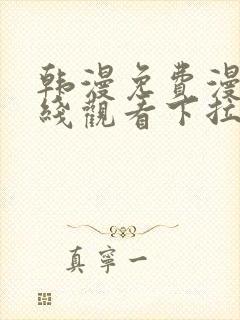 韩漫免費漫
綫觀看下拉
真寧一